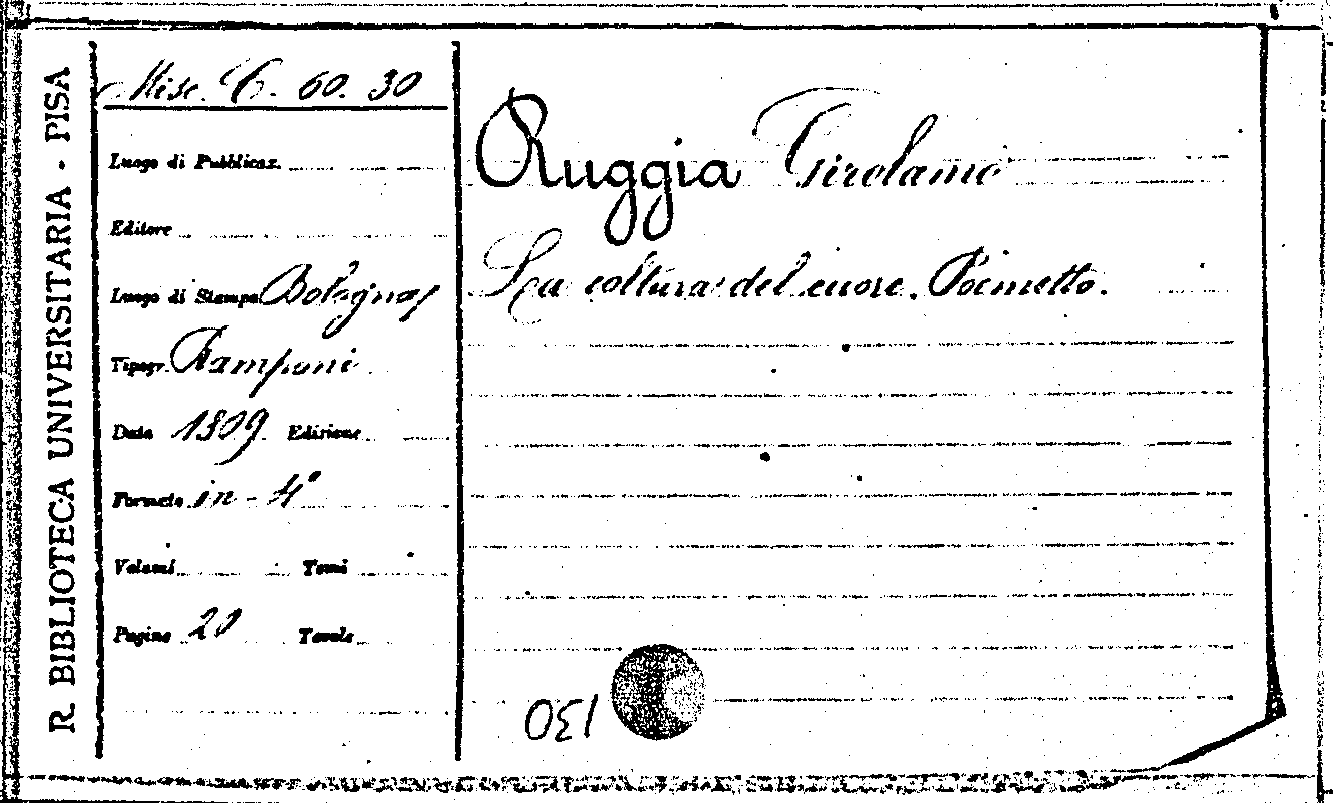 R. BIBLIOTECA UNIVERSITARIA - PISA
Misc. C. 60. 30
Luogo di Pubblicaz.
Editore
Luogo di Stampa Bologna
Tipogr. Ramponi
Data 1809 Edizione
Formato in - 4°
Volumi Tomi
Pagine 20 Tavole
Ruggia Girolamo
La coltura del cuore. Poemetto.
130